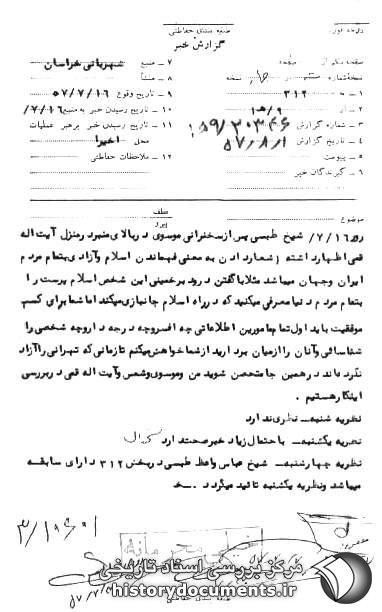 طبقه بندی حفاظتی
گزارش خبر
۷ ـ منبع شهربانی خراسان
۸ ـ منشأ
۱ ـ به ۳۱۲
۹ ـ تاریخ وقوع ۵۷/۷/۱۶
۲ ـ از ۹هـ۱
۱۰ ـ تاریخ رسیدن خبر به منبع ۷/۱۶/
۳ ـ شماره گزارش
۱۱ ـ تاریخ رسیدن خبر برهبر عملیات
۴ ـ تاریخ گزارش ۵۷/۸/۱
محل اخیرا
۵ ـ پیوست
۱۲ ـ ملاحظات حفاظتی
۶ ـ گیرندگان خبر
موضوع
عطف
پیرو
روز ۷/۱۶/ شیخ طبسی پس از سخنرانی موسوی در بالای منبر در منزل آیت اله
قمی اظهار داشته (شعار دادن به معنی فهماندن اسلام و آزادی بتمام مردم
ایران وجهان میباشد مثلا با گفتن درود بر خمینی این شخص اسلام پرست را
بتمام مردم دنیا معرفی میکنید که در راه اسلام جانبازی میکند اما شما برای کسب
موفقیت باید اول تمام مامورین اطلاعاتی چه افسر وچه درجه دار وچه شخصی را
شناسائی وآنان را از میان بردارید از شما خواهش میکنم تا زمانی که تهرانی را آزاد
نکرده اند در همین جا متحصن شوید من وموسوی وشمس وآیت اله قمی در بررسی
اینکار هستیم .
نظریه شنبه ـ نظری ندارد
نظریه یکشنبه ـ با احتمال زیاد خبر صحت دارد
نظریه چهارشنبه ـ شیخ عباس واعظ طبسی در بخش ۳۱۲ دارای سابقه
میباشد ونظریه یکشنبه تائید میگردد .
مرکز بررسی اسناد تاریخی
historydocuments.ir